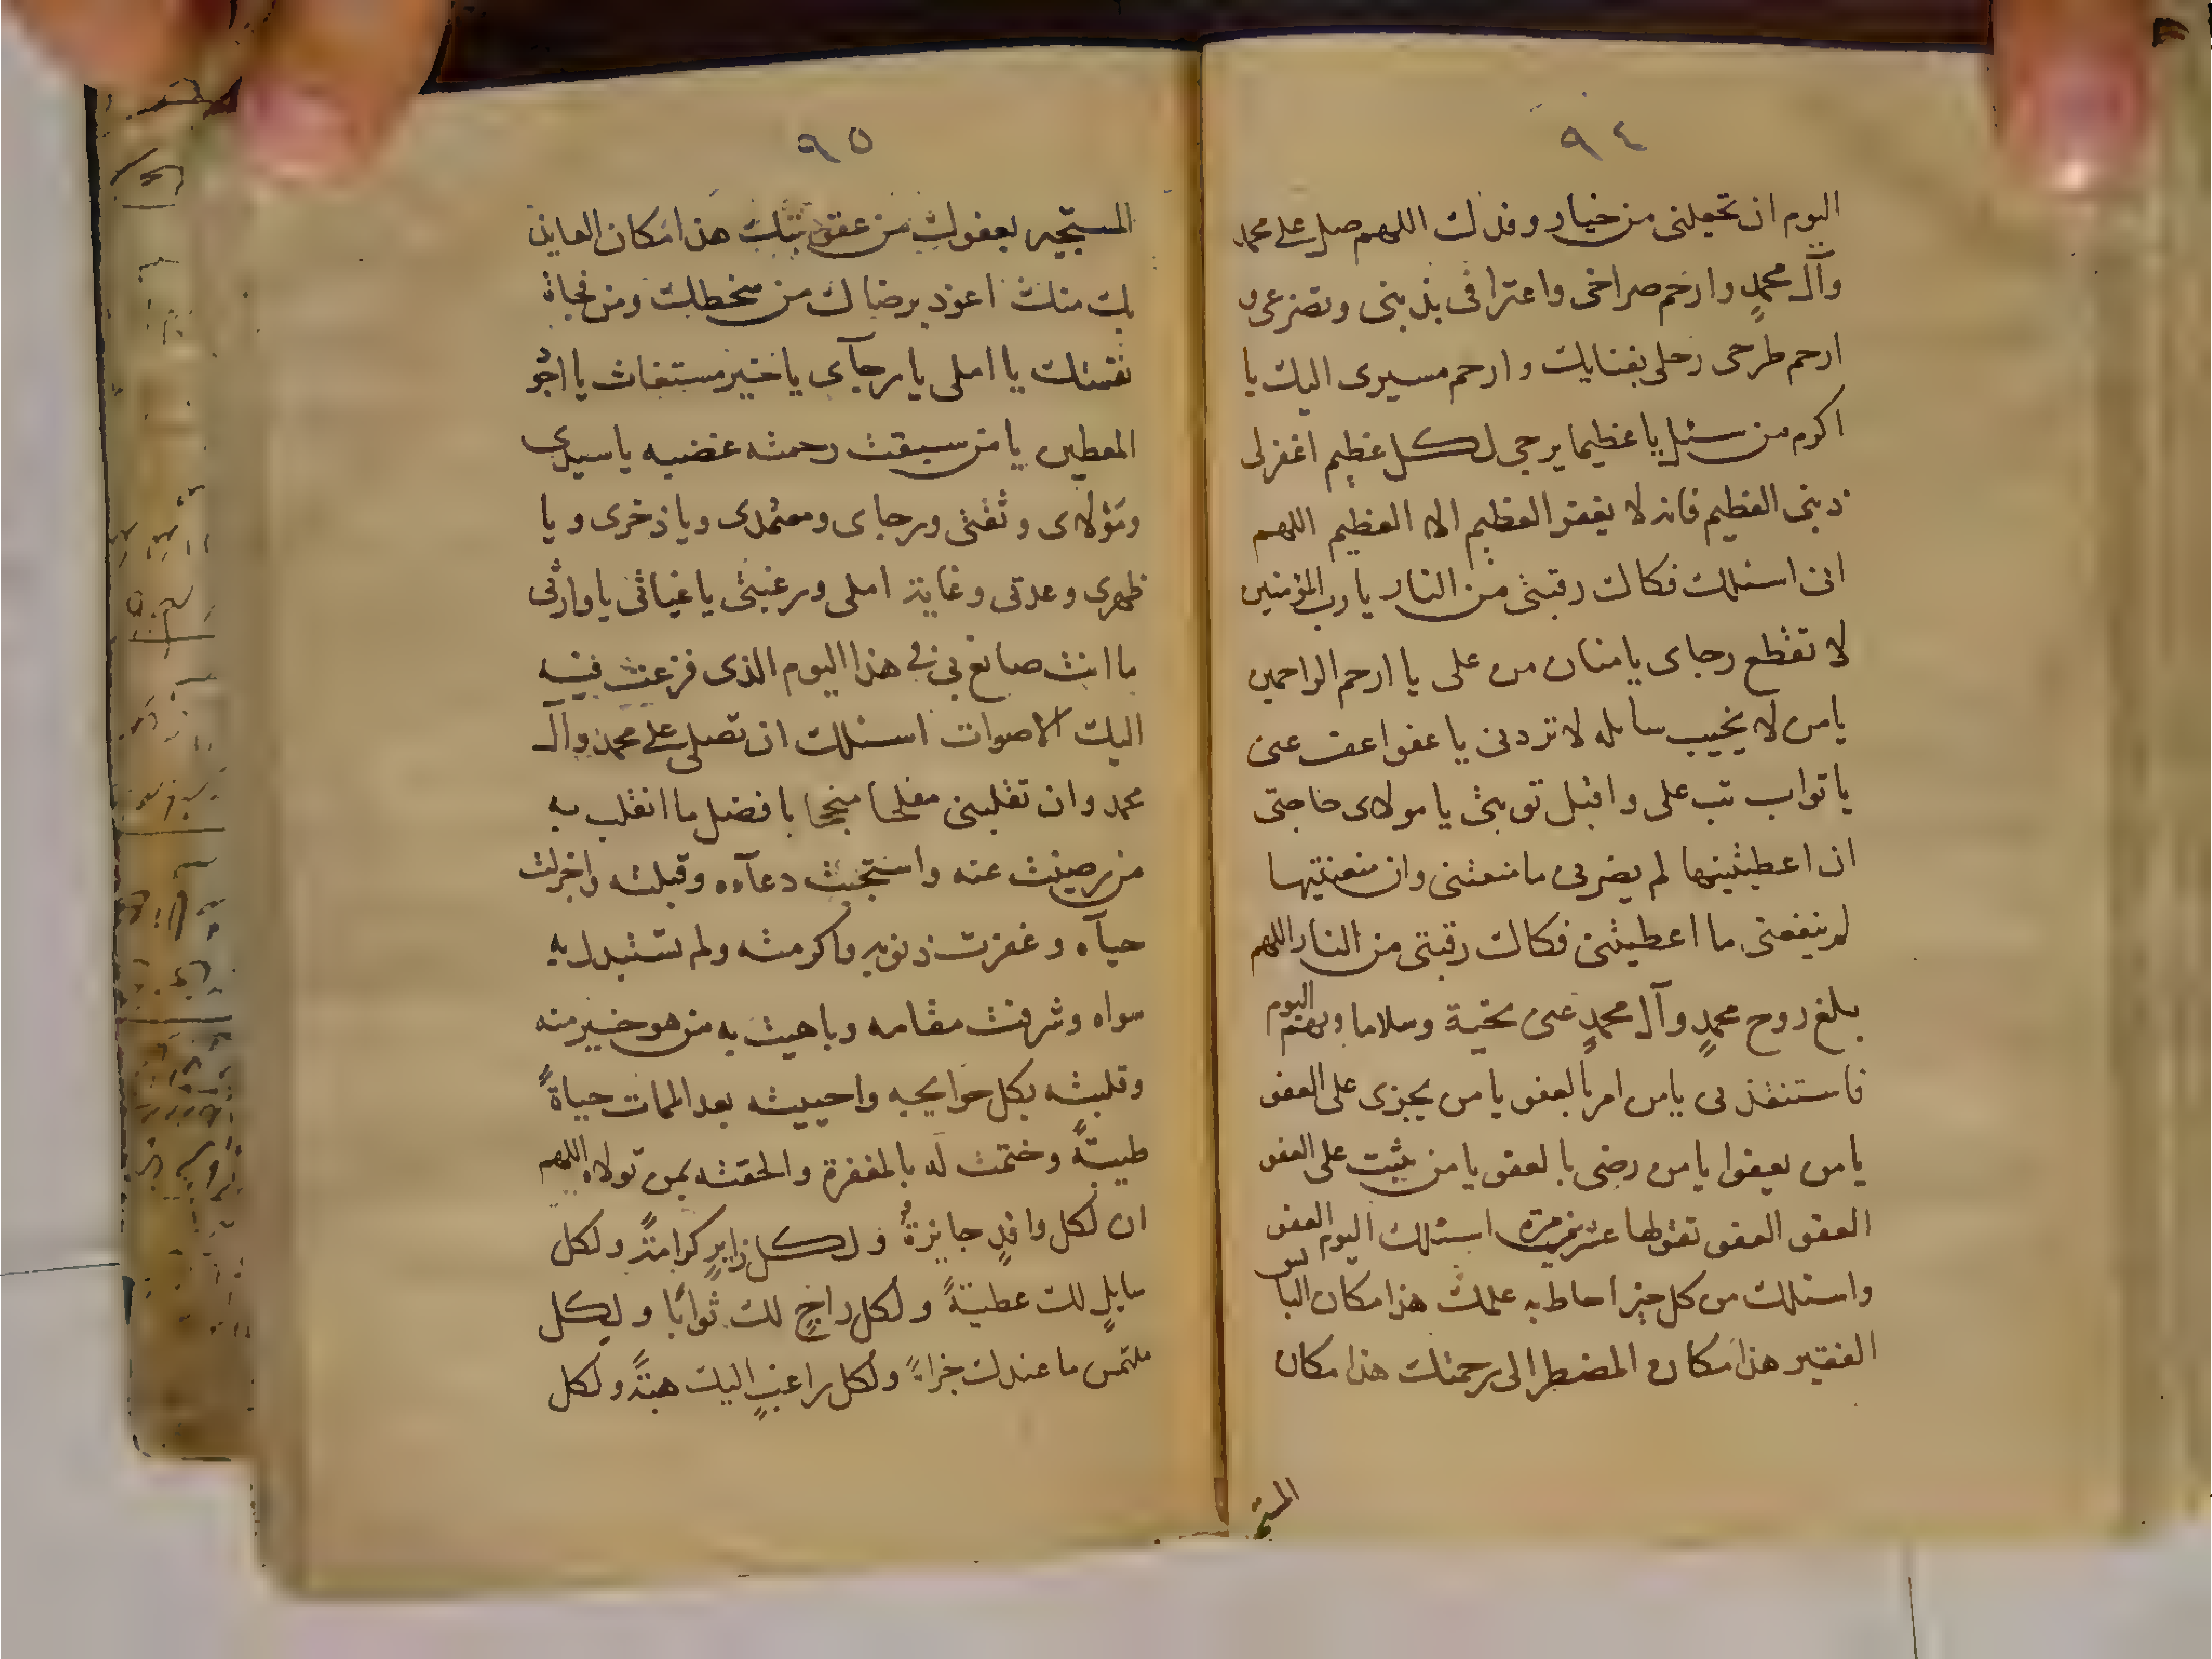 ٩٤
اليوم ان تجعلنى من خيار وفدك اللهم صل على محمد
وآل محمدٍ وارحم صراخى واعترافى بذنبى وتضرعى و
ارحم طرحى رحلى بفنايك وارحم مسيرى اليك يا
اكرم من سئل يا عظيما يرجى لكل عظيم اغفرلى
ذنبى العظيم فانه لا يغفر العظيم الا العظيم اللهم
انى اسئلك فكاك رقبتى من النار يا رب المؤمنين
لا تقطع رجاى يا منان من على يا ارحم الراحمين
يا من لا يخيب سايله لا تردنى يا عفو اعف عنى
يا تواب تب على واقبل توبتى يا مولاى حاجتى
ان اعطيتنيها لم يضرنى ما منعتنى وان منعتنيها
لم ينفعنى ما اعطيتنى فكاك رقبتى من النار اللهم
بلغ روح محمدٍ وآل محمدٍ عنى تحية وسلاما وبهم اليوم
فاستنقذنى يا من امر بالعفو يا من يجزى على العفو
يا من يعفوا يا من رضى بالعفو يا من يثيب على العفو
العفو العفو تقولها عشرين مرة اسئلك اليوم العفو
واسئلك من كل خير احاط به علمك هذا مكان البائس
الفقير هذا مكان المضطر الى رحمتك هذا مكان
المستجير
٩٥
المستجير بعفوك من عقوبتك هذا مكان العايذ
بك منك اعوذ برضاك من سخطك ومن فجاة
نقمتك يا املى يا رجآى يا خير مستغاث يا اجود
المعطين يا من سبقت رحمته غضبه يا سيدى
ومولاى وثقتى ورجاى ومعتمدى ويا ذخرى ويا
ظهرى وعدتى وغاية املى ورغبتى يا غياثى يا وارثى
ما انت صانع بى فى هذا اليوم الذى فزعت فيه
اليك الاصوات اسئلك ان تصلى على محمد وآل
محمد وان تقلبنى مفلحا منجحا بافضل ما انقلب به
من رضيت عنه واستجبت دعآءه وقبلته واجزلت
حبآه وغفرت ذنوبه واكرمته ولم تستبدل به
سواه وشرفت مقامه وباهيت به من هو خير منه
وقلبته بكل حوايجه واحييته بعد الممات حياةً
طيبةً وختمت له بالمغفرة والحقته بمن تولاه اللهم
ان لكل وافدٍ جايزةً ولكل زايرٍ كرامةً ولكل
سايلٍ لك عطيةً ولكل راجٍ لك ثوابًا ولكل
ملتمس ما عندك جزاءً ولكل راغبٍ اليك هبةً ولكل